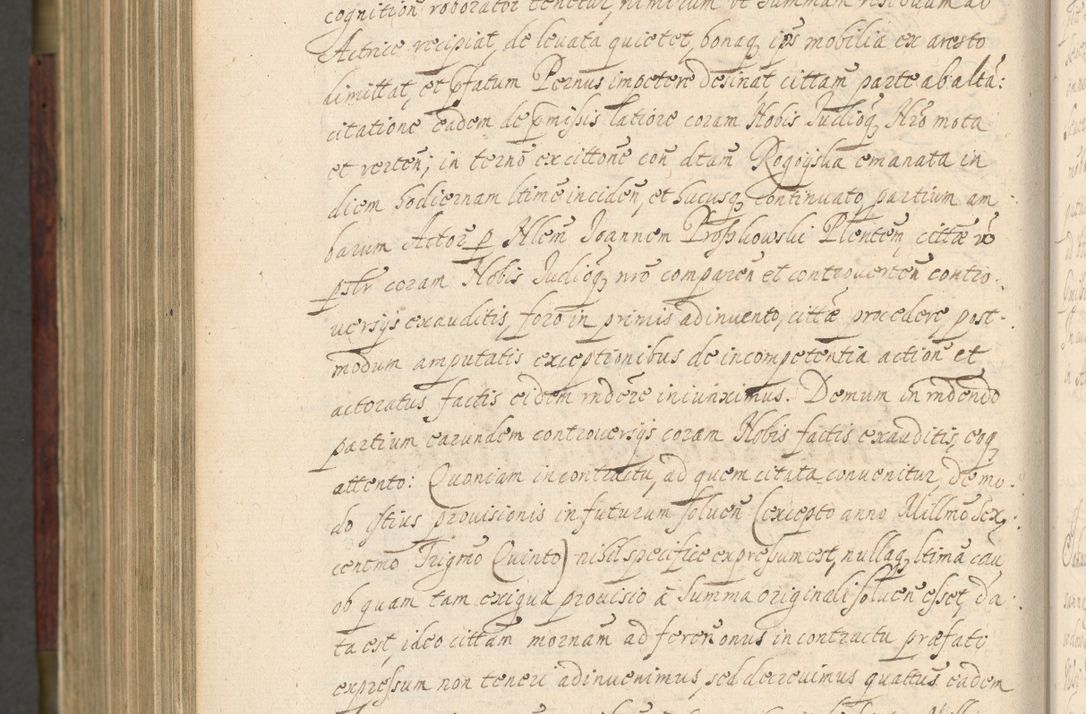 cognition roborator tenetur, nimirum ut summam residuam ab
Actrice recipiat, de levata quietet, bonaq ips mobilia ex aresto
dimittat, et pfatum Pernus impetere desinat, cittam parte ab alta:
citatione eadem de pmissis latiore coram Nobis Judlioq Nro mota
et verten; in termo ex cittone con dtam Rogoyska emanata in
diem hodiernam ltime inciden, et hucusq continuato, partium am
barum Actor p Nlem Joannem Prosskowski Plentem, cittae vo
pstr coram Nobis Judlioq nro comparen et controverten contro-
versijs exauditis, foro in primis adinvento, cittae procedere, post-
modum amputatis exceptionibus de incompetentia action et
actoratus factis eidem rndere iniunximus. Demum in rndendo
partium earundem controversijs coram Nobis factis exauditis, eoq
attento: Quoniam in contractu, ad quem citata convenitur, de mo-
do istius provisionis in futurum solven (excepto anno Millmo Sex
centmo Trigmo Quinto) nihil specifice expressum est, nullaq ltima cau
ob quam tam exigua provisio a Summa originali solven esset, da
ta est, ideo cittam mornam ad feren onus in contractu praefato
expressum non teneri adinvenimus, sed decrevimus quattus eadem